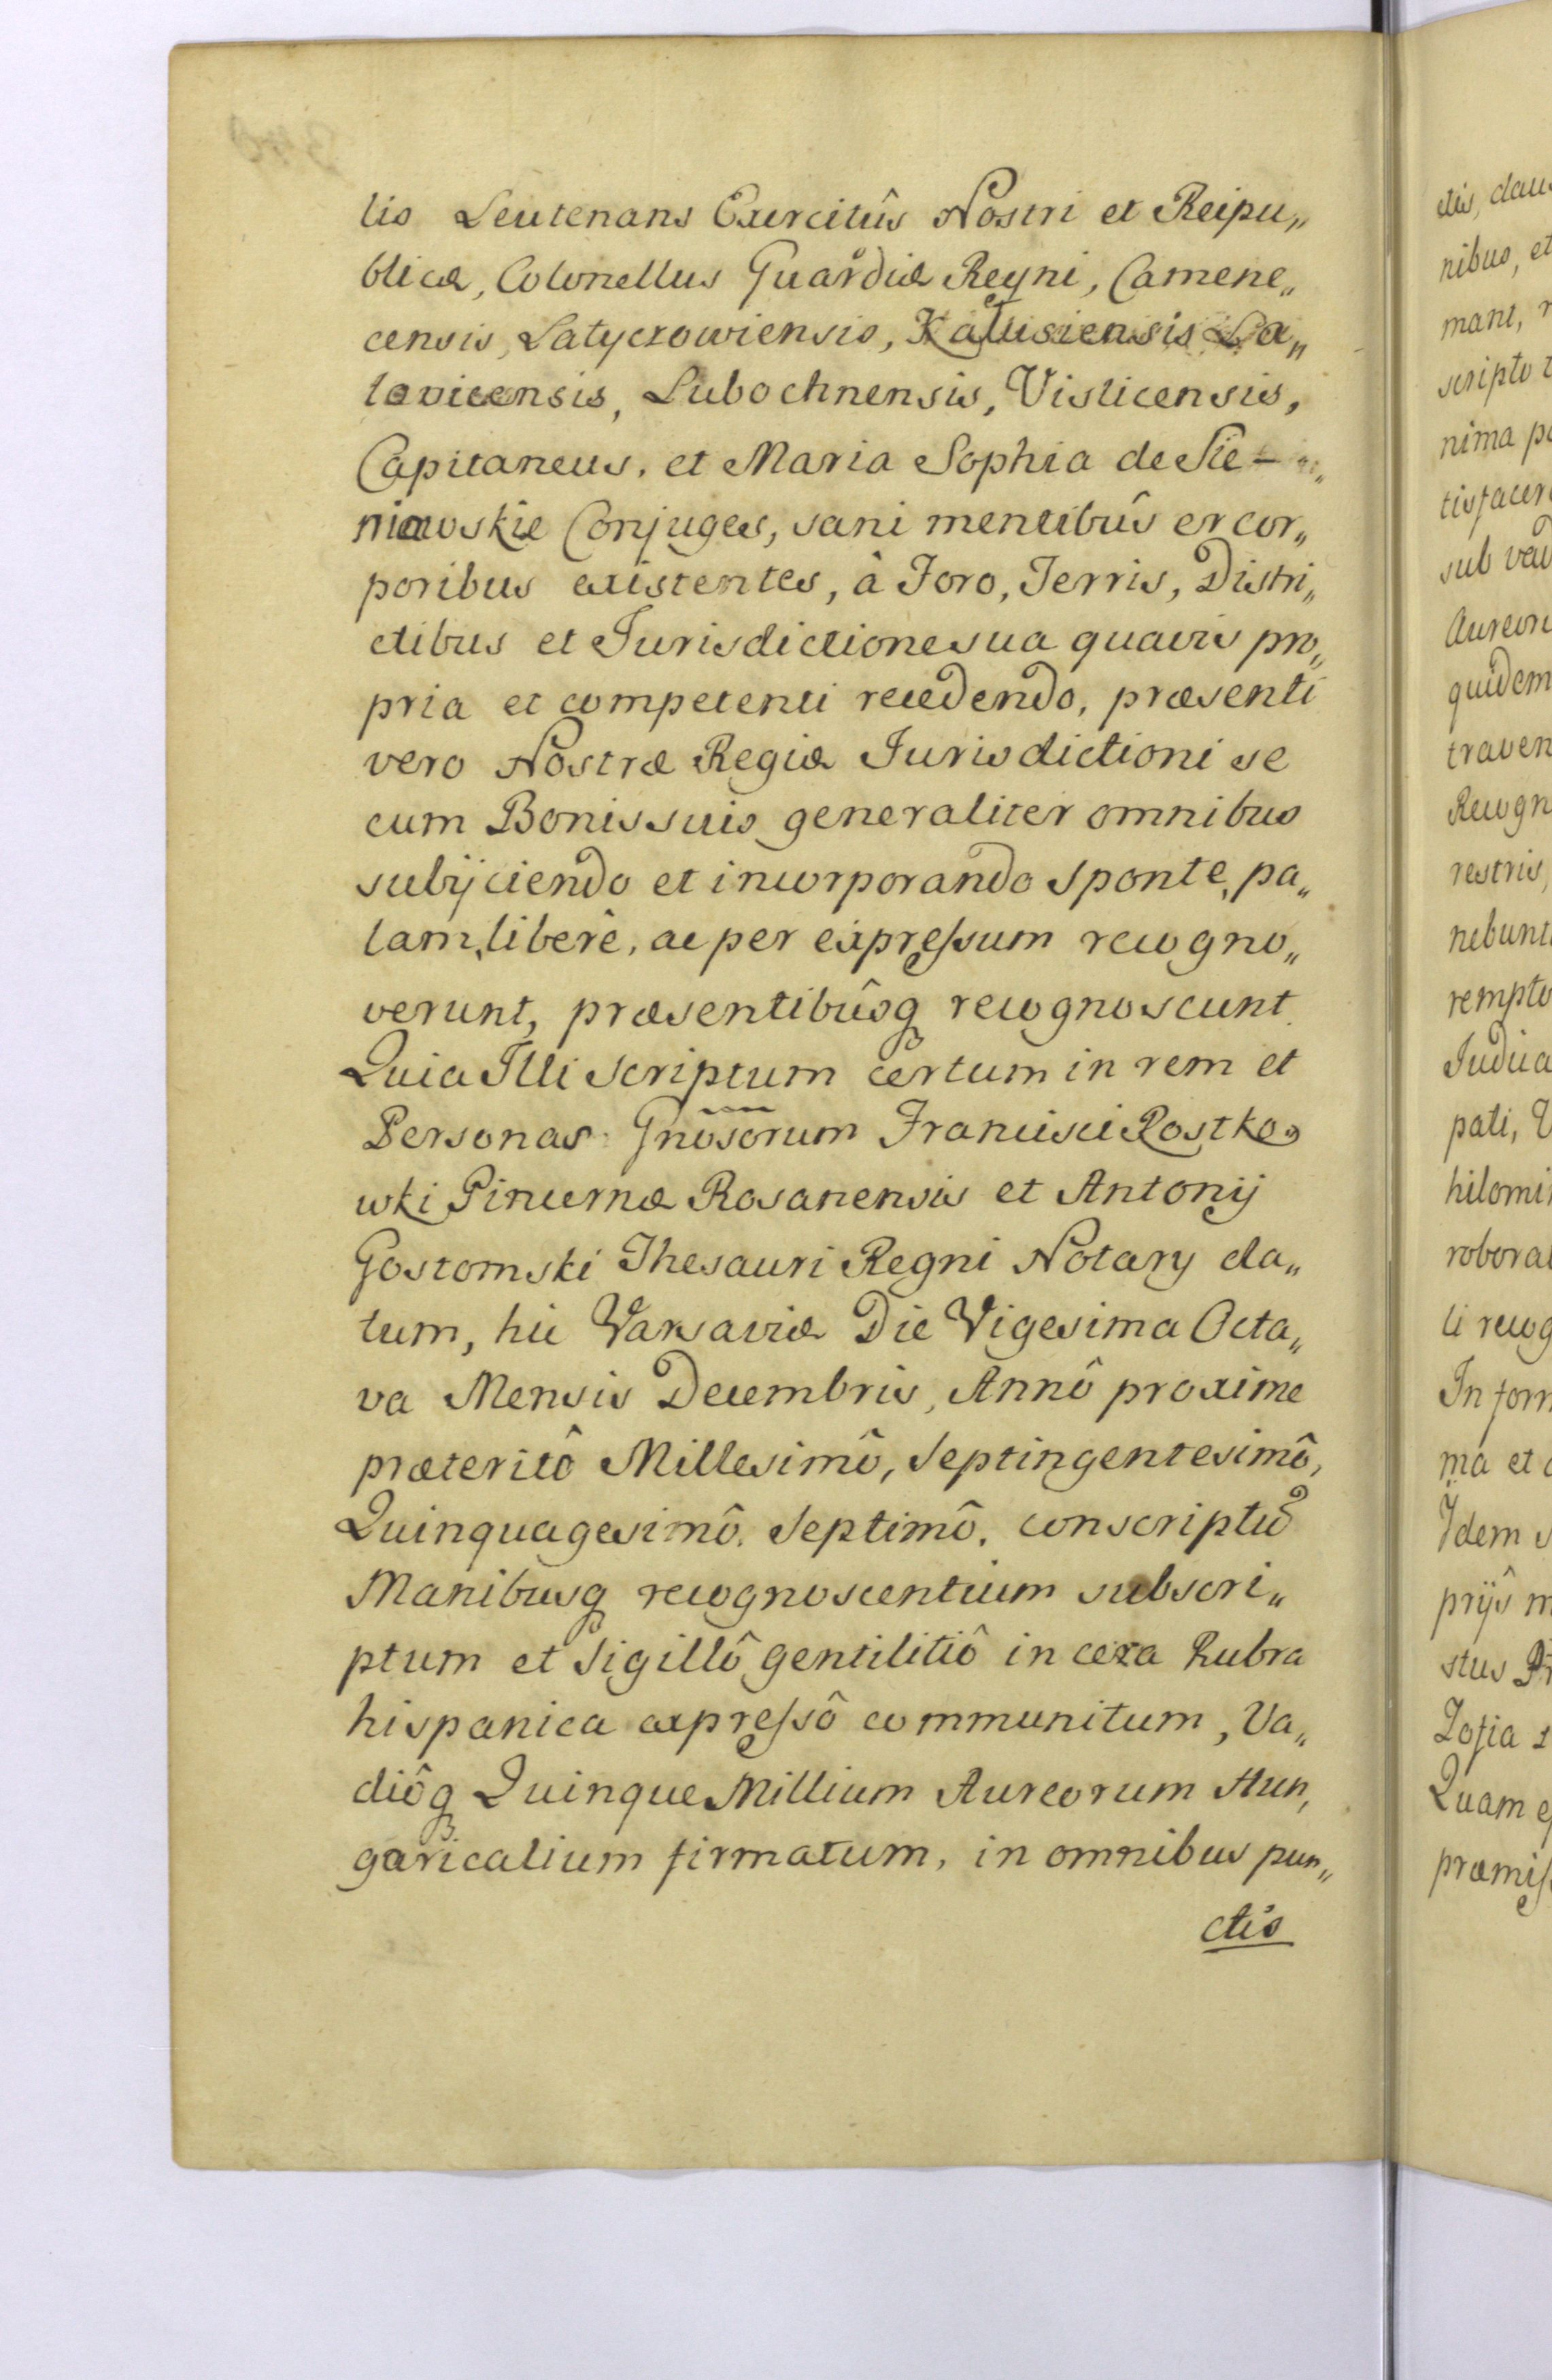 lis Leutenans Exercitûs Nostri et Reipu„
blicæ, Colonellus Guardiæ Regni, Camene„
censis, Latyczowiensis, Kałusiensis La„
tovicensis, Lubochnensis, Visticensis,
Capitaneus, et Maria Sophia de Sie-
niawskie Conjuges, sani mentibûs et cor„
poribus existentes, â Foro, Terris, Distri„
ctibus et Jurisdictione sua quavis pro„
pria et competenti recedendo, præsenti
vero Nostræ Regiæ Jurisdictioni se
cum Bonis suis generaliter omnibus
subijciendo et incorporando sponte, pa„
lam, liberê, ac per expressum recogno„
verunt, præsentibûsq recognoscunt
Quia Illi scriptum certum in rem et
Personas Gnosorum Francisci Rostko„
wki Pincernæ Rosanensis et Antonij
Gostomski Thesauri Regni Notary da„
tum, hic Varsaviæ Die Vigesima Octa„
va Mensis Decembris, Annô proxime
præteritô Millesimô, Septingentesimô,
Quinquagesimô, Septimô, conscriptũ
Manibusq recognoscentium subscri„
ptum et Sigillô gentilitiô in cera Rubra
hispanica expressô communitum, Va„
diôq Quinque Millium Aureorum Hun„
garicalium firmatum, in omnibus pun„
ctis
ctis, clau
nibus, et
mant,
scripto
nima
tisfacer
sub vad
Aureor
quidem
traven
Recogn
restris,
nebunt
rempto
Judica
pati,
hilomi
roborat
ti recog
In form
ma et
Idem
prijs m
stus
Zofia
Quam
præmis